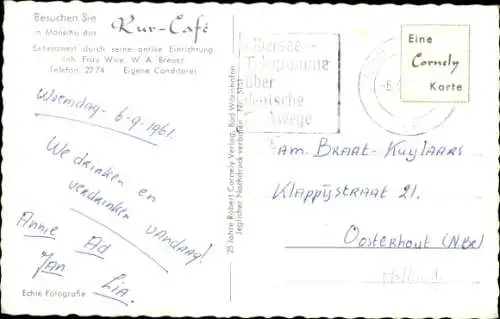 Besuchen Sie
in Monschau das Kur-Café
Sehenswert durch seine antike Einrichtung
Inh. Frau Wwe. W. A. Breuer
Telefon 2274 Eigene Conditorei
Woensdag - 6-9-1961.
We drinken en
verdrinken vandaag!
Annie Ad
Jan Lia.
Echte Fotografie
25 Jahre Robert Cornely Verlag, Bad Wörishofen
Jeglicher Nachdruck verboten Nr.
Übersee-
Telegramme
über
deutsche
Funkwege
Eine
Cornely
Karte
Fam. Braat-Kuylaars
Klappijstraat 21.
Oosterhout (N.Br)
Holland